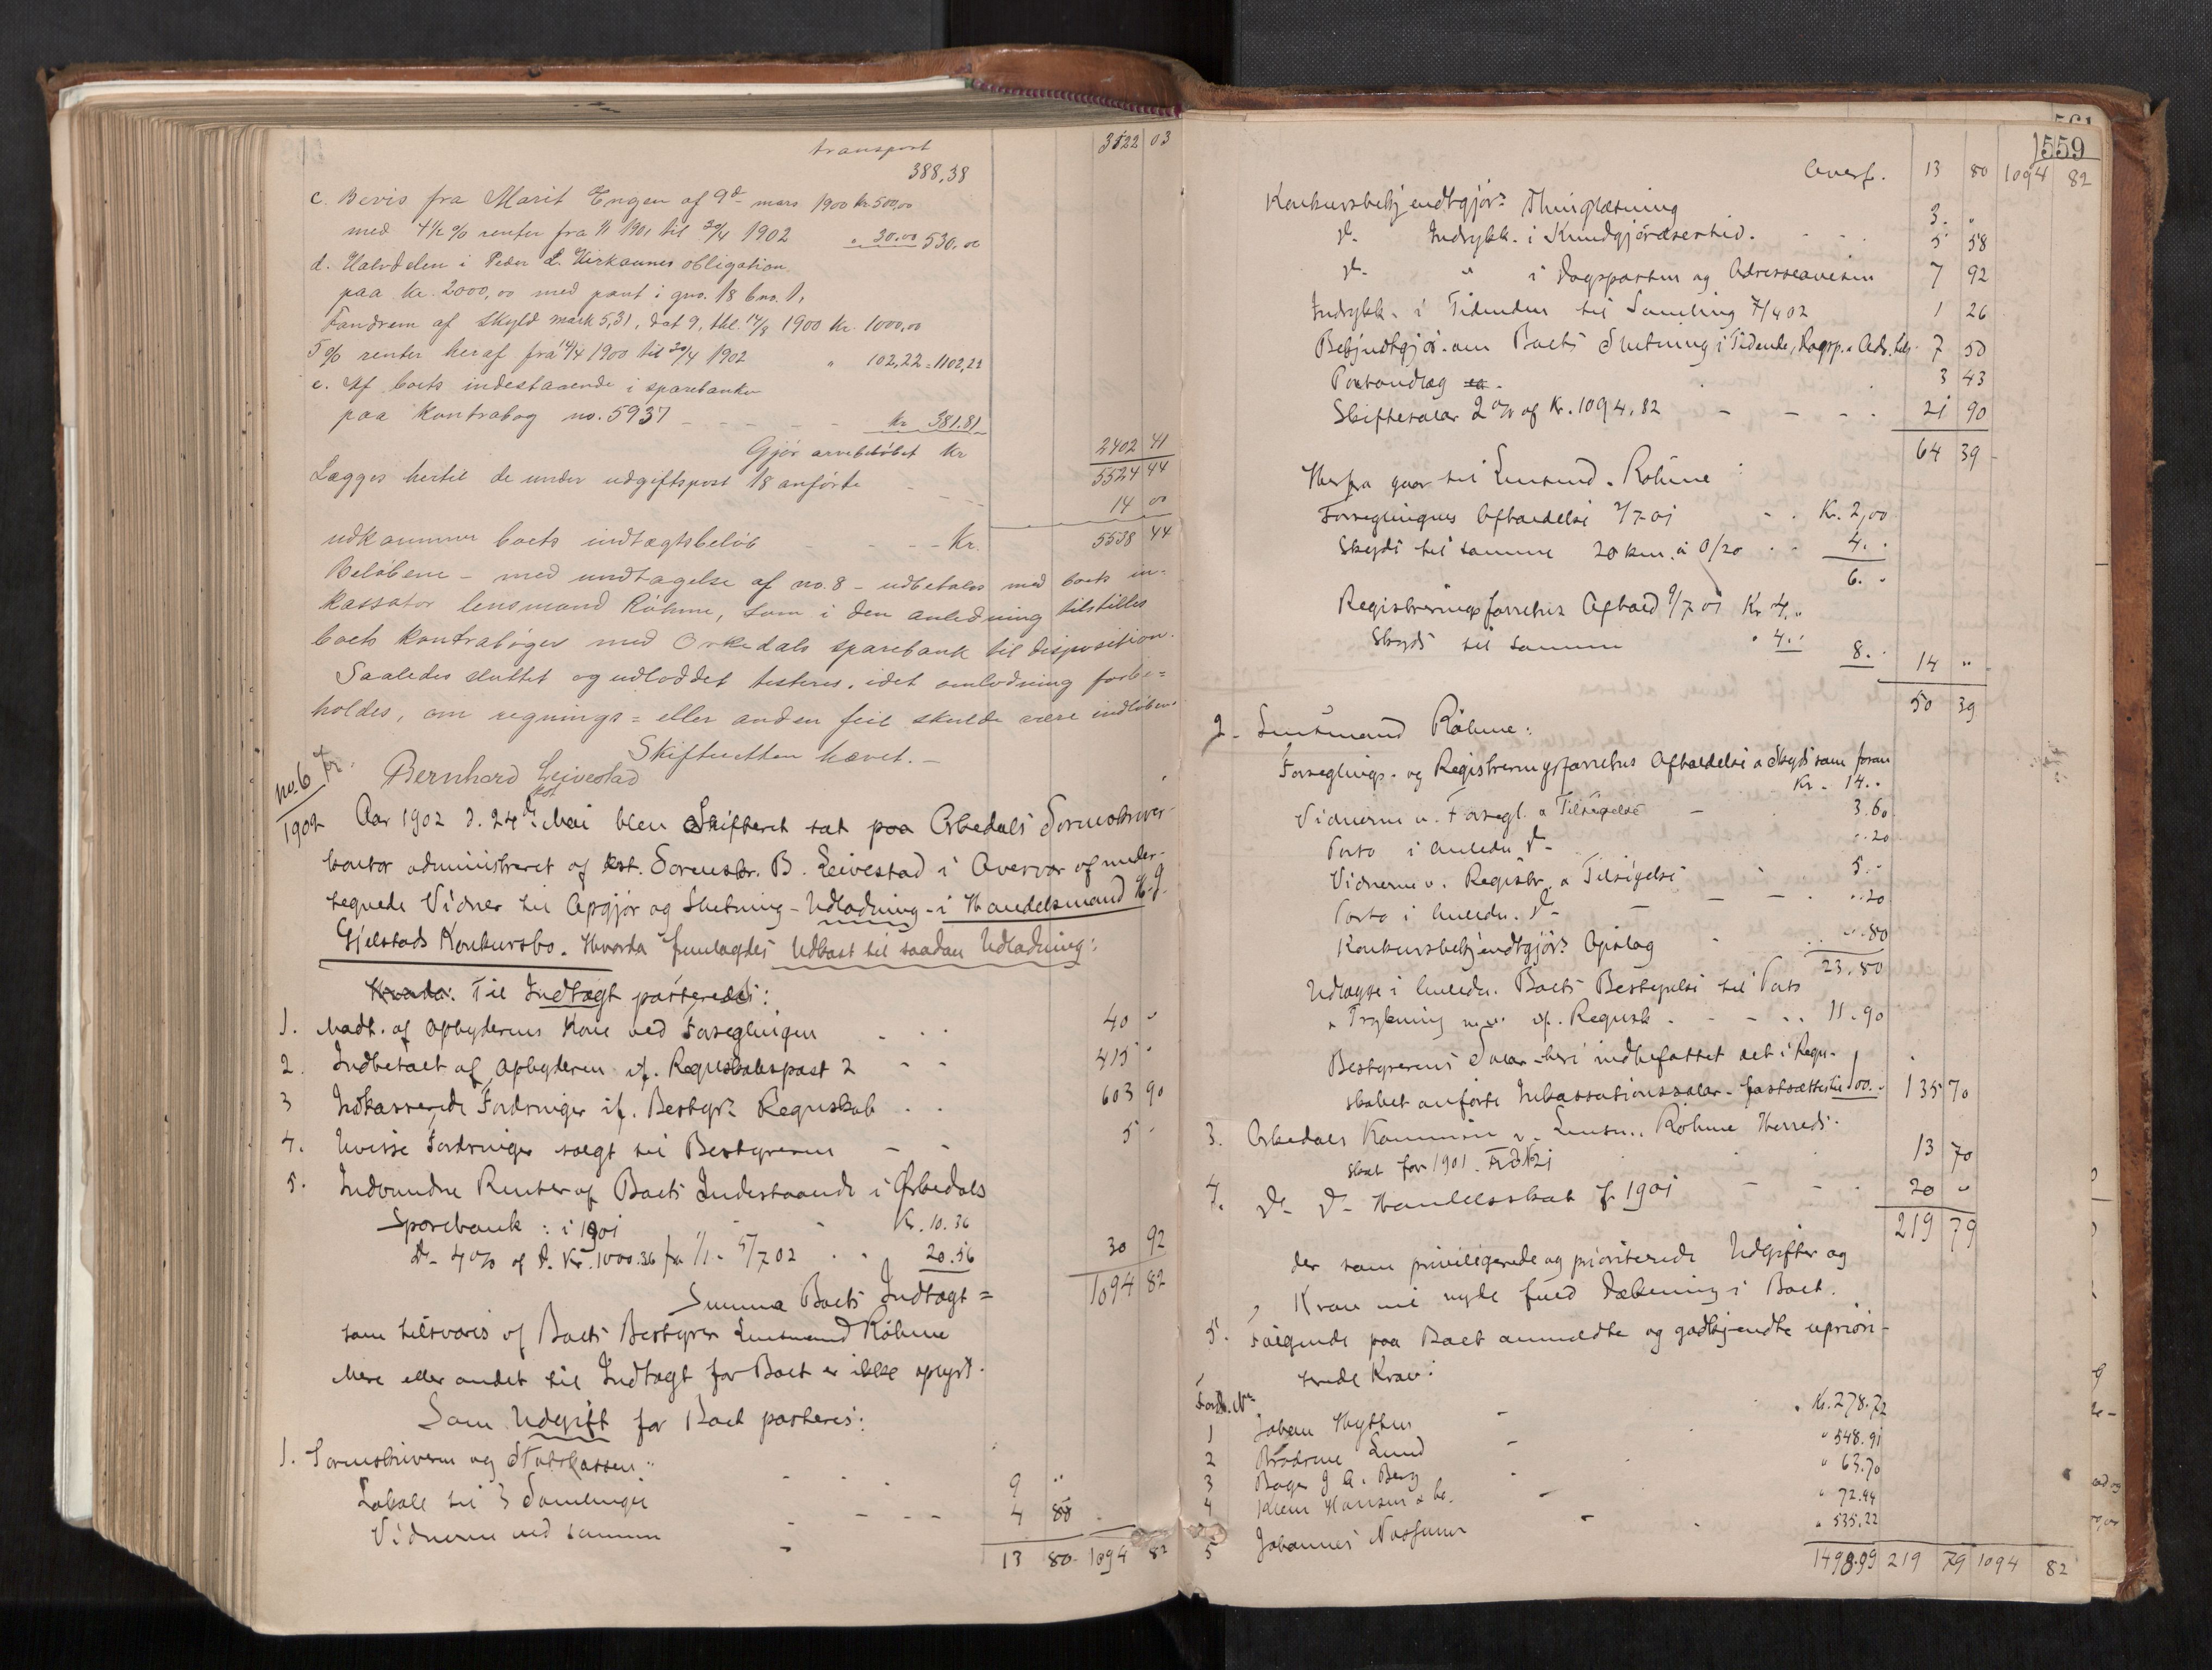 transport 3122 03
388,38
c. Bevis fra Marit Engen af 9d mars 1900 kr 500,00
med 4 1/2 % renter fra 1/1 1901 til 30/4 1902 " 30,00 530,00
d. Halvdelen i Peder L. Kirkaunes obligation
paa kr. 2000,00 med pant i gno. 18 bno. 1,
Fandrem af skyld mark 5,31, dat 9, thl. 14/8 1900 kr. 1000,00
5 % renter heraf fra 14/4 1900 til 30/4 1902 " 102,22 = 1102,22
e. Af boets indestaaende i sparebanken
paa kontrabog no. 5937 - - - - kr 381.81
Gjør arvebeløbet kr 2402 41
5524 44
Lægges hertil de under udgiftspost 18 anførte - - 14 00
udkommer boets indtægtsbeløb - - - - Kr. 5538 44
Beløbene - med undtagelse af no. 8 - udbetales med boets in-
kassator lensmand Røhme, som i den anledning tilstilles
boets kontrabøger med Orkedals sparebank til disposition.
Saaledes sluttet og udloddet testeres, idet omlodning forbe=
holdes, om regnings = eller anden feil skulde være indløben.
Skifteretten hævet. -
Bernhard Leivestad
kst
no. 6
1902
Aar 1902 d. 24de Mai blev Skifteret sat paa Orkedals Sorenskriver-
kontor administreret af kst. Sorenskr. B. Leivestad i Overvær af under-
tegnede Vidner til Opgjør og Slutning - Udlodning - i Handelsmand H. J.
Gjelstads Konkursbo. Hvorda fremlagdes Udkast til saadan Udlodning:
Hvorda: Til Indtægt posteredes:
1. Modt. af Opbyderens Kone ved Forseglingen - - 40 "
2. Indbetalt af Opbyderen if. Regnskabspost 2 - - 415 "
3 Indkasserede Fordringer if. Bestyr's Regnskab . . 603 90
4. Uvisse Fordringer solgt til Bestyreren - - 5 "
5. Indvundne Renter af Boets Indestaaende i Orkedals
Sparebank : i 1901 - Kr. 10.36
do 4 % af d. Kr. 1000.36 fra 1/1 - 5/7 02 . . 20.56 30 92
Summa Boets Indtægt = 1094 82
som tilsvares af Boets Bestyrer Lensmand Röhme
Mere eller andet til Indtægt for Boet er ikke oplyst.
Som Udgift for Boet posteres:
1. Sorenskriveren og Statskassen:
Lokale til 3 Samlinger - - - 9 "
Vidnerne ved samme - - - 4 80
13 80 1094 82
559
Overf. 13 80 1094 82
Konkursbekjendtgjør's Thinglæsning 3. "
do Indrykk. i Kundgjørelsestid. - - - 5 58
do " i Dagsposten og Adresseavisen 7 92
Indrykk. i Tidenden til Samling 7/4 02 1 26
Bekjendtgjör. om Boets Slutning i Tidende, Dagsp. & Adr. tids. 7 50
Portoudlæg . 3 43
Skiftesalær 2 % af Kr. 1094.82 - - - . 21 90
64 39
Herfra gaar til Lensmd. Röhme :
Forseglingens Afholdelse 2/7 01 - . Kr. 2,00
Skyds til samme 20 km. à 0/20 . . 4. .
6. .
Registreringsforretn's Afhold 9/7 01 Kr 4..
Skyds til samme " 4..
8. . 14 "
50 39
2. Lensmand Röhme:
Forseglings- og Registreringsforretns Afholdelse & Skyds som foran
Kr. 14..
Vidnerne v. Forsegl. & Tilsigelse - 3.60
Porto i Anledn. do " .20
Vidnerne v. Registr. & Tilsigelse 5..
Porto i Anledn. do - - - . " .20
Konkursbekjendtgjør's Opslag - . " .80
23.80
Udlægge i Anledn. Boets Bestyrelse til Porto
& Trykning m.v. if. Regnsk. - - . . 11.90
Bestyrerens Salær - heri indbefattet det i Regn-
skabet anførte Inkassationssalær - fastsættes til 100.. 135 70
3. Orkedals Kommune v. Lensm. Röhme Herreds-
skat for 1901. Frd N 21 13 70
4. do do Handelsskat f. 1901 - - . 20 "
219 79
der som priviligerede og prioriterede Udgifter og
Krav vil nyde fuld Dækning i Boet.
5. Følgende paa Boet anmeldte og godkjendte upriori-
terede Krav:
Fordr. No
1 Johan Hythus - " Kr. 278.72
2 Brødrene Lund - " 548.91
3 Bager J. A. Berg - " 63.70
4 Klem Hansen & Co. - " 72.44
5 Johannes - - " 535.22
1498.99 219 79 1094 82